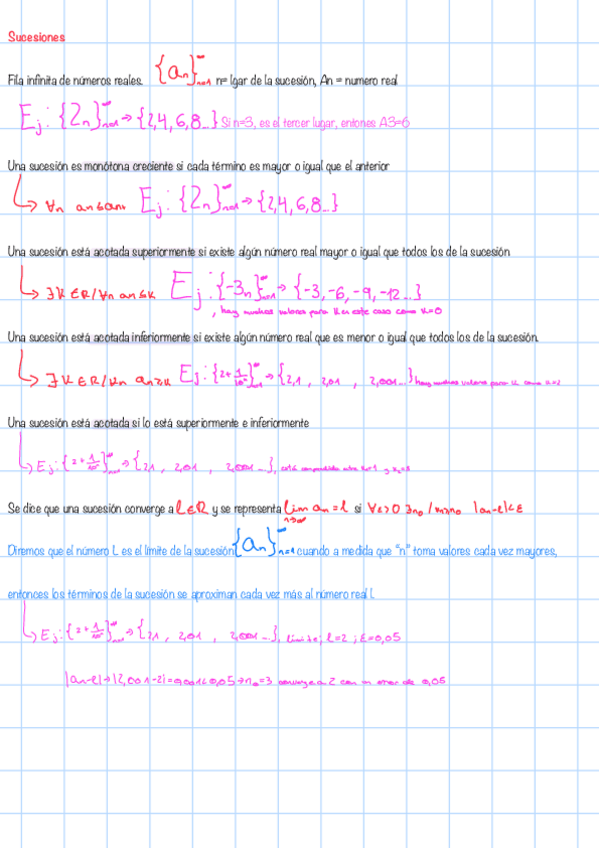 Sucesiones
Fila infinita de números reales. {an}∞n=1 n= lgar de la sucesión, An = numero real
Ej: {2n}∞n=1 → {2,4,6,8...} Si n=3, es el tercer lugar, entones A3=6
Una sucesión es monótona creciente si cada término es mayor o igual que el anterior
∀n an≤an+1 Ej: {2n}∞n=1 → {2,4,6,8...}
Una sucesión está acotada superiormente si existe algún número real mayor o igual que todos los de la sucesión
∃K∈R/∀n an≤K Ej: {-3n}∞n=1 → {-3, -6, -9, -12...}
, hay muchos valores para K en este caso como K=0
Una sucesión está acotada inferiormente si existe algún número real que es menor o igual que todos los de la sucesión.
∃K∈R/∀n an≥K Ej: {2+1/10ⁿ}∞n=1 → {2,1 , 2,01 , 2,001...} hay muchos valores para K como K=2
Una sucesión está acotada si lo está superiormente e inferiormente
Ej: {2+1/10ⁿ}∞n=1 → {2,1 , 2,01 , 2,001...}, está comprendida entre
Se dice que una sucesión converge a l∈R y se representa lim n→∞ an=l si ∀ε>0 ∃n₀/n≥n₀ |an-l|<ε
Diremos que el número L es el límite de la sucesión {an}∞n=1 cuando a medida que "n" toma valores cada vez mayores,
entonces los términos de la sucesión se aproximan cada vez más al número real L
Ej: {2+1/10ⁿ}∞n=1 → {2,1 , 2,01 , 2,001...}, límite; l=2 ; ε=0,05
|an-l|→|2,001-2|=0,001<0,05→n₀=3 converge a 2 con un error de 0,05